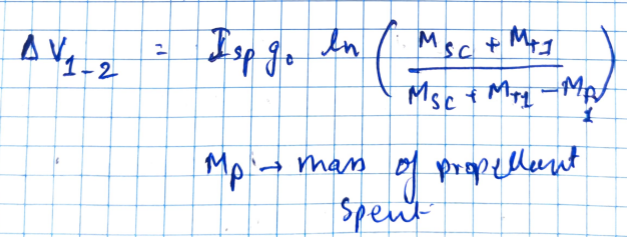 ΔV₁₋₂ = Isp g₀ ln ( (MSC + Mt1) / (MSC + Mt1 - MP1) )
MP → mass of propellant
spent